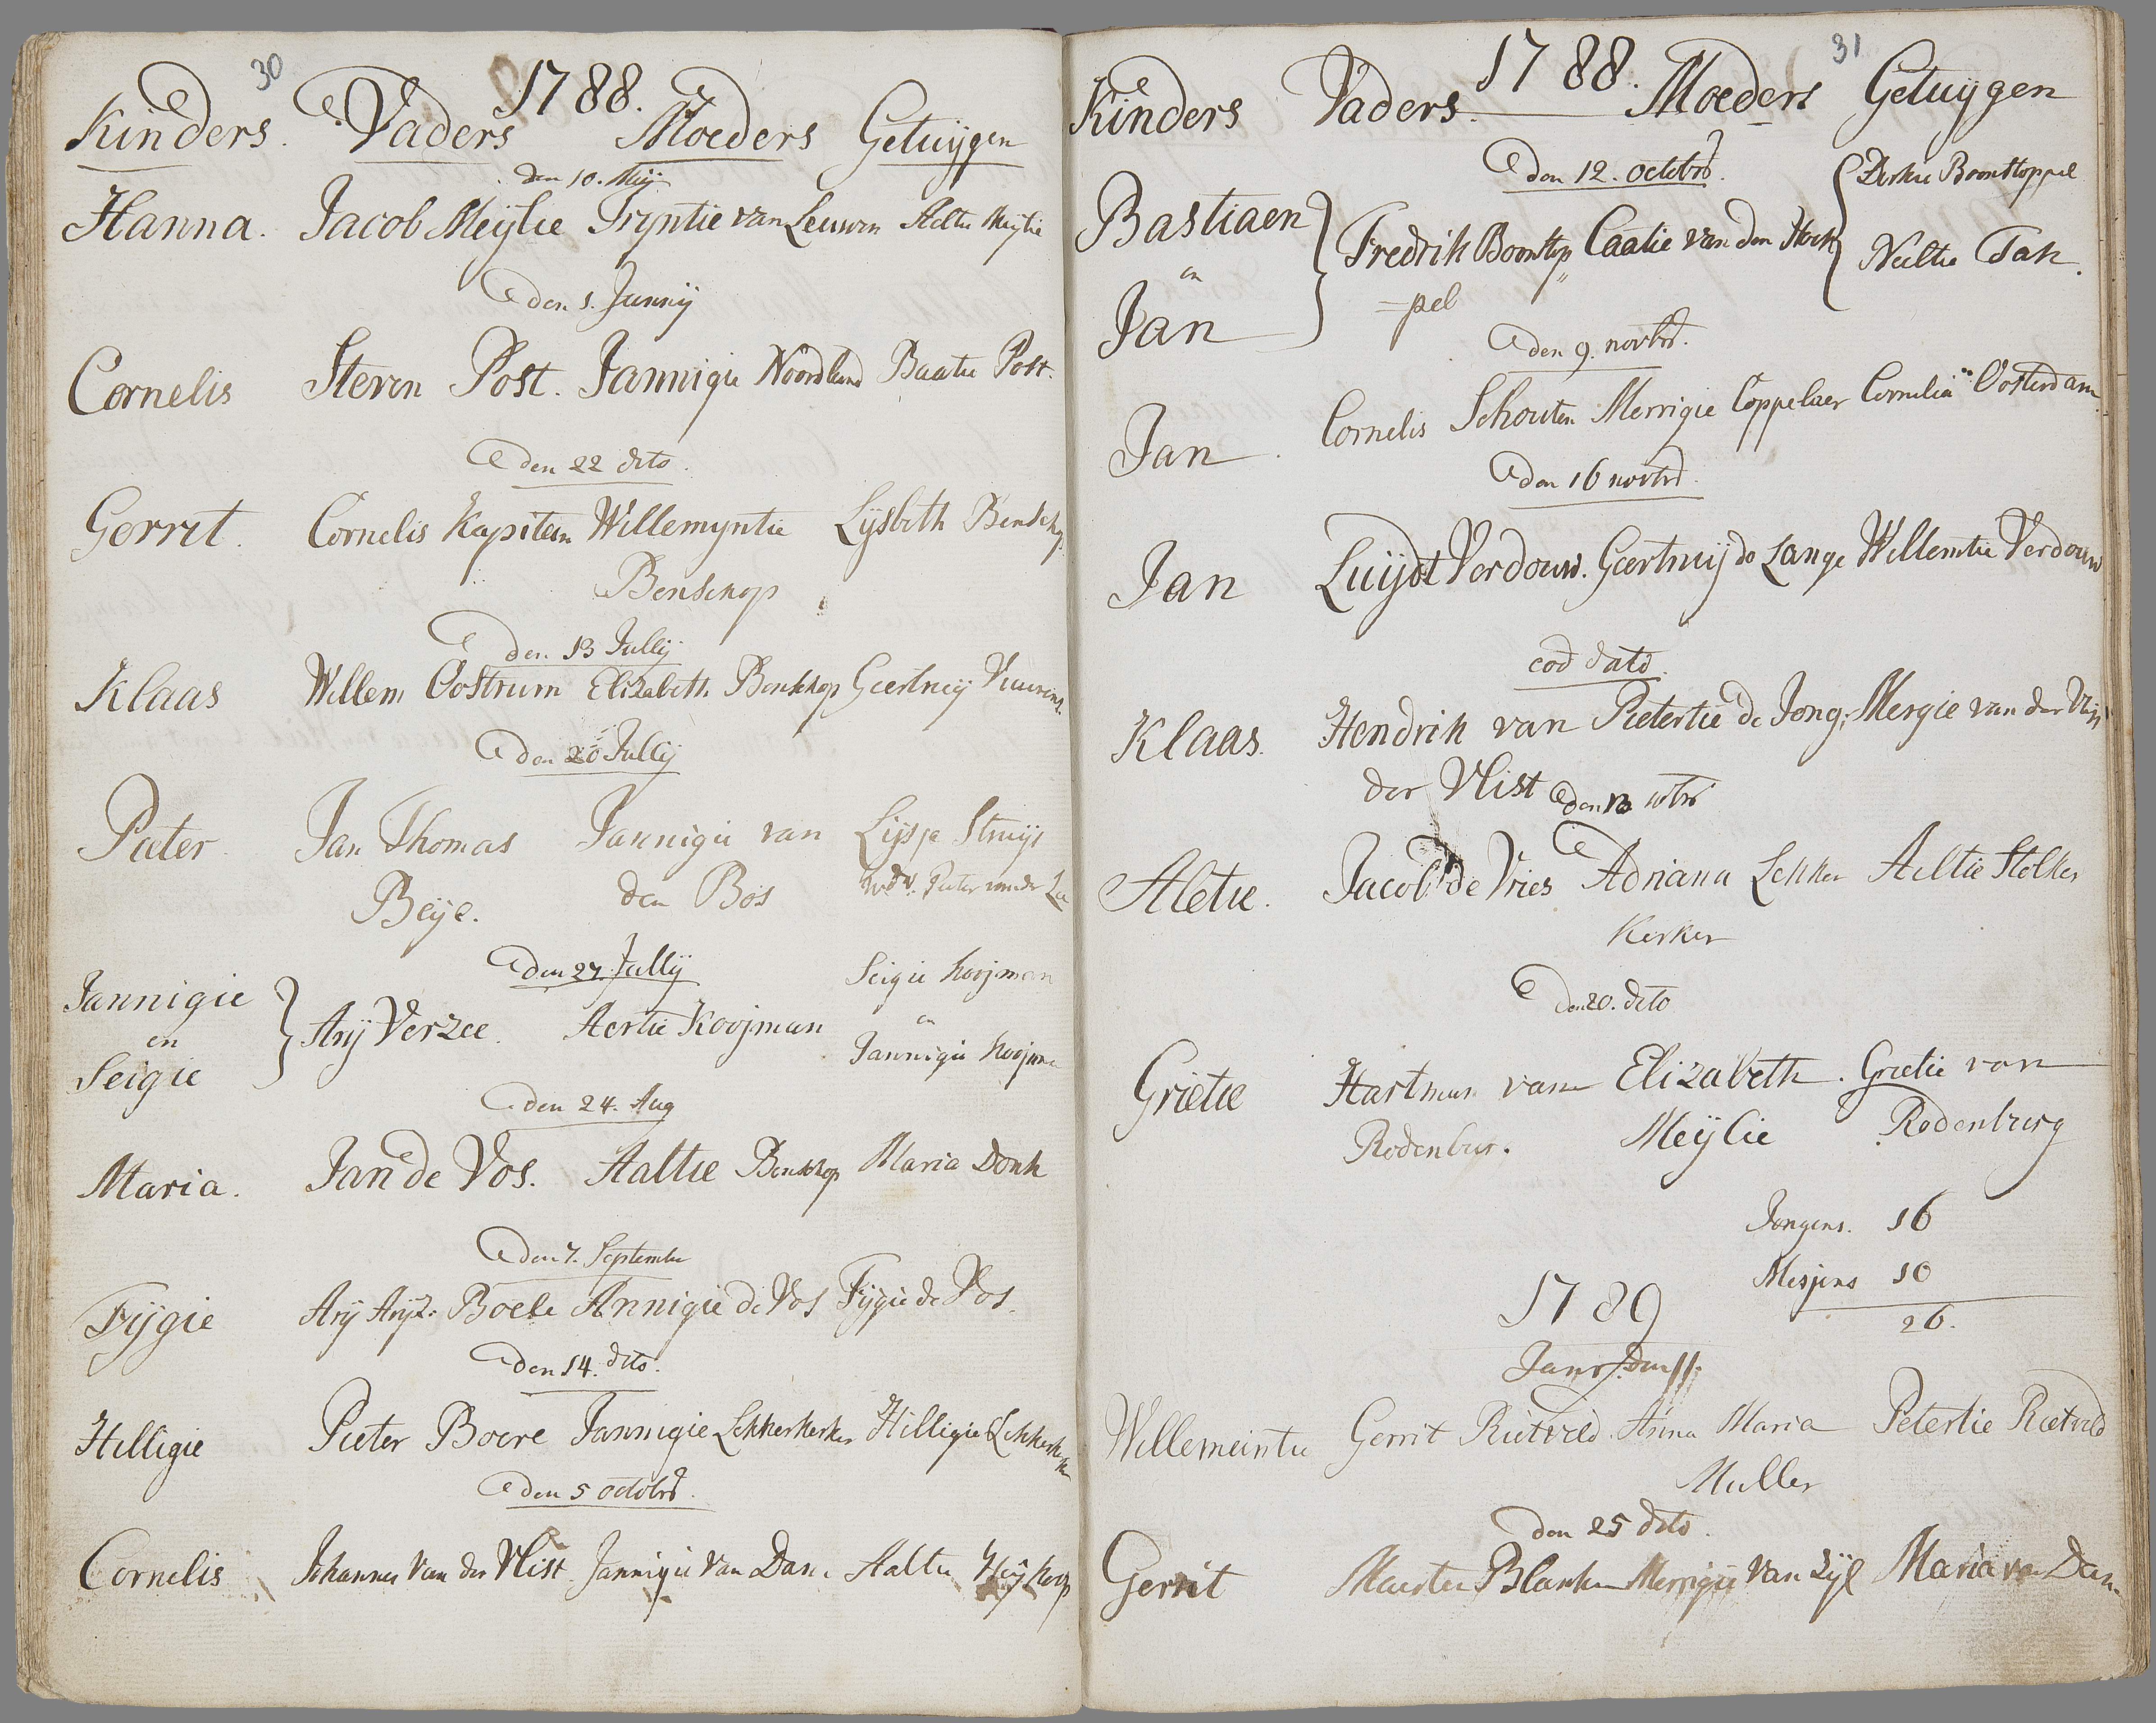 30
1788.
Kinders. Vaders Moeders Getuijgen
den 10. Meij
Hanna. Jacob Meijlie Tryntie van Leuwen Aeltie Meijlie
den 1. Junnij
Cornelis Steven Post. Jannigie Noordland Baatie Post.
den 22 dito.
Gerrit. Cornelis Kapitein Willemyntie Lijsbeth Benschop
Benschop
den 13 Jullij
Klaas Willem Oostrum Elizabeth Benschop Geertruij
den 20 Jullij
Pieter Jan Thomas Jannigie van Lijsje Struijs
Beije. den Bos wed. v. Pieter van der
den 27. Jullij Seigie Kooijman
Jannigie
en } Arij Verzee. Aertie Kooijman en
Seigie Jannigie Kooijman
den 24. Aug
Maria. Jan de Vos. Aaltie Benschop Maria Donk
den 7. September
Fijgie Arij Arijz: Boele Annigie de Vos Fijgie de Vos.
den 14. dito.
Hilligie Pieter Boere Jannigie Lekkerkerker Hilligie Lekkerkerker
den 5 octobr.
Cornelis Johannes Van der Vlist Jannigie Van Dam Aaltie Heijkoop
31
1788.
Kinders Vaders. Moeders Getuijgen
den 12. octobr.
Bastiaen { Dirkie Boonstoppel
en } Fredrik Boonstop Caatie van den Hoek
Jan =pel Neeltie Tak.
den 9. novbr.
Jan. Cornelis Schouten Merrigie Coppelaer Cornelia Oosterdam
den 16 novbr.
Jan Luijdt Verdouw. Geertruij de Lange Willemtie Verdouw
eod dato.
Klaas. Hendrik van Pietertie de Jong. Mergie van der Vlist
der Vlist den 13 10br
Aletie. Jacob de Vries Adriana Lekker Aeltie Stolker
Kerker
den 20. dito
Grietie Hartman van Elizabeth. Grietie van
Rodenbur. Meijlie Rodenburg
Jongens. 16
Mesjens 10
26.
1789
Janr. den 11.
Willemeintie Gerrit Rietveld. Anna Maria Petertie Rietveld
Muller
den 25 dito.
Gerrit Maerten Blanken Merrigie Van Zijl Maria van Dam